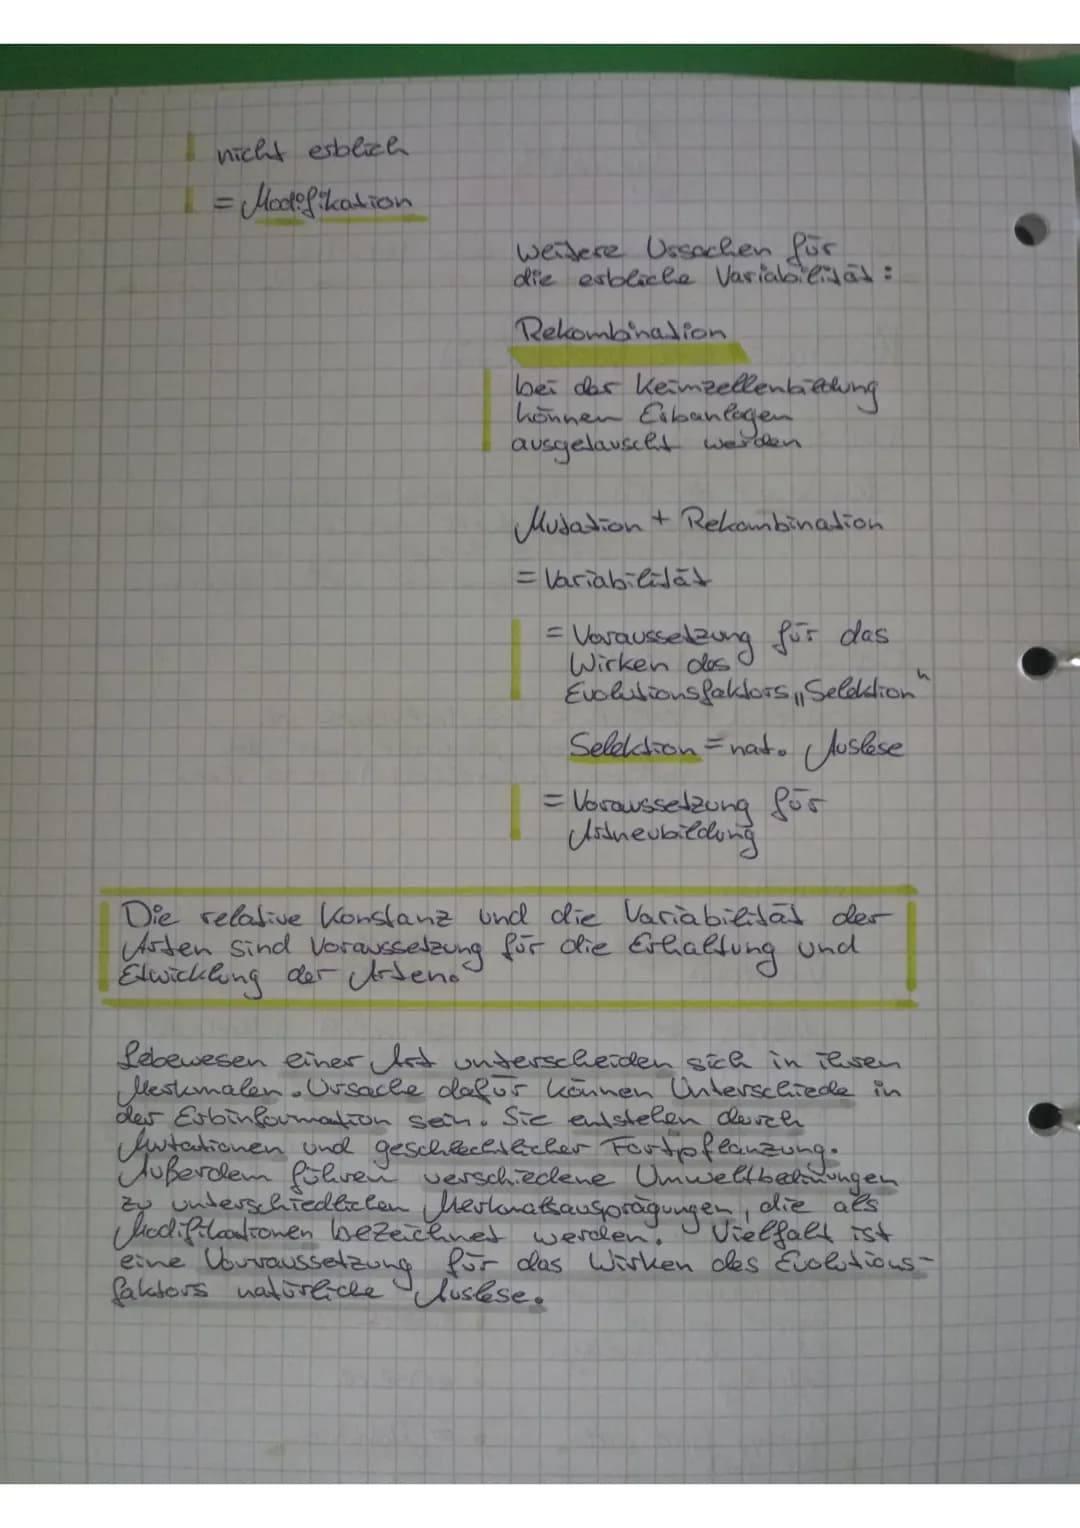 nicht erblich
= Modifikation
weitere Ursachen für
die erbliche Variabilität:
Rekombination
bei der Keimzellenbildung
können Erbanlagen
ausgetauscht werden
Mutation + Rekombination
= Variabilität
= Voraussetzung für das
Wirken des
Evolutionsfaktors „Selektion"
Selektion = nat. Auslese
= Voraussetzung für
Artneubildung
Die relative Konstanz und die Variabilität der
Arten sind Voraussetzung für die Erhaltung und
Etwicklung der Arten.
Lebewesen einer Art unterscheiden sich in ihren
Merkmalen. Ursache dafür können Unterschiede in
der Erbinformation sein. Sie entstehen durch
Mutationen und geschlechtlicher Fortpflanzung.
Außerdem führen verschiedene Umweltbedinungen
zu unterschiedlichen Merkmalsausprägungen, die als
Modifikationen bezeichnet werden. Vielfalt ist
eine Vorraussetzung für das Wirken des Evolutions-
faktors natürliche Auslese.